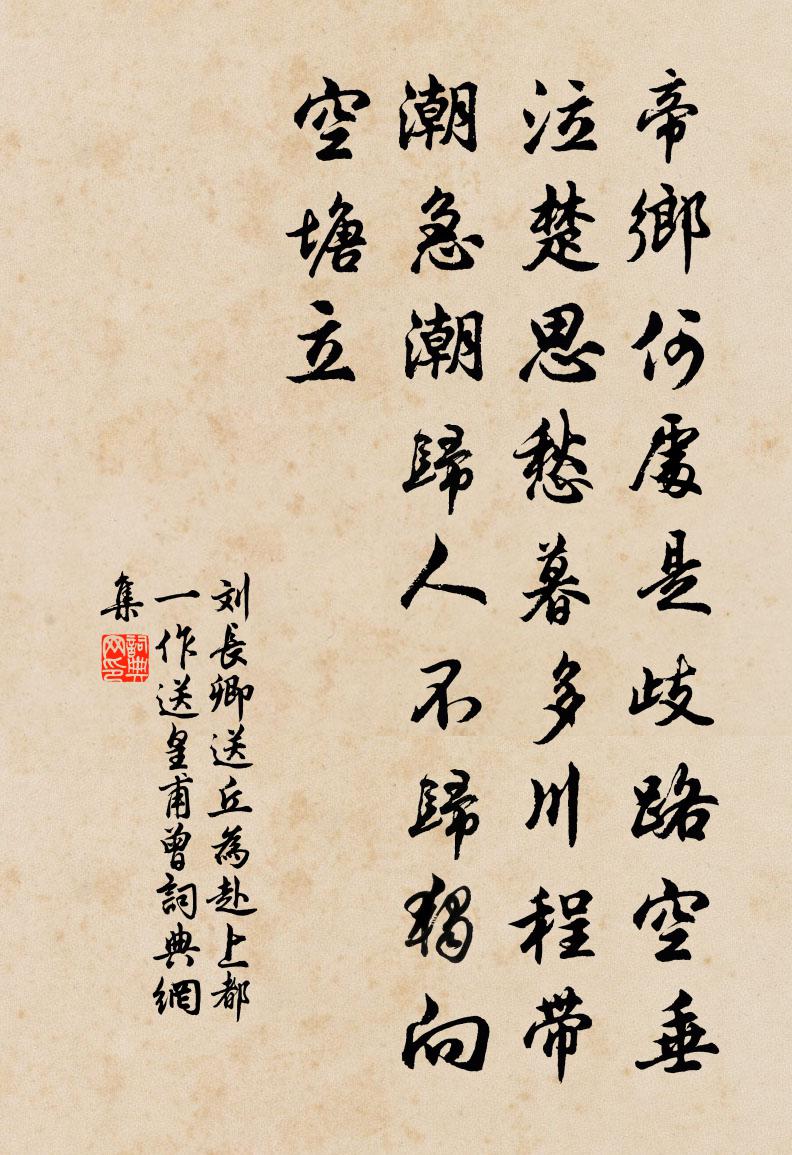 帝鄉何處是歧路空垂
泣楚思愁暮多川程帶
潮急潮歸人不歸獨向
空塘立
刘長卿送丘為赴上都
一作送皇甫曾詞典網
集
詞典
网印